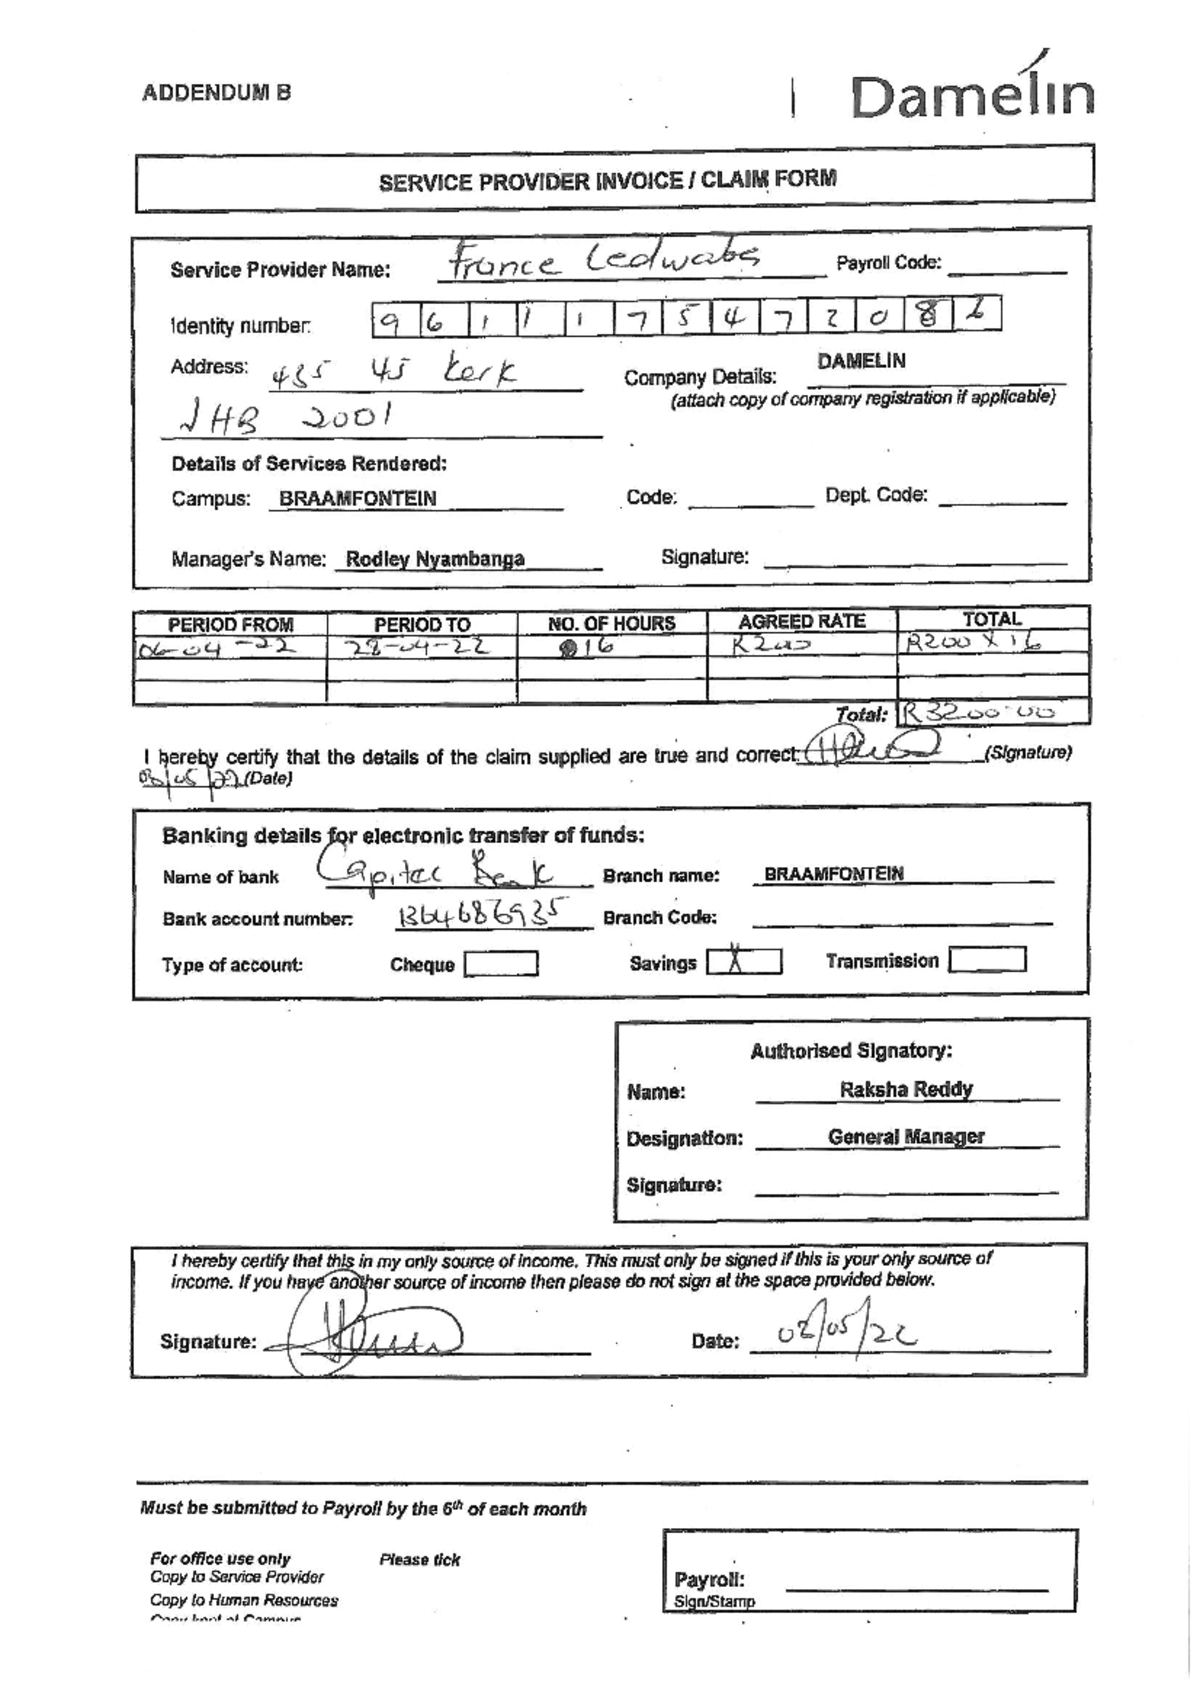 ADDENDUM B
Damelin
SERVICE PROVIDER INVOICE / CLAIM FORM
Service Provider Name: France Ledwaba Payroll Code:
Identity number: 9 6 1 1 1 7 5 4 7 2 0 8
Address: 435 45 Kerk Company Details: DAMELIN
(attach copy of company registration if applicable)
JHB 2001
Details of Services Rendered:
Campus: BRAAMFONTEIN Code: Dept. Code:
Manager's Name: Rodley Nyambanga Signature:
PERIOD FROM PERIOD TO NO. OF HOURS AGREED RATE TOTAL
06-04-22 28-04-22 16 R200 R200 X 16
Total: R3200-00
I hereby certify that the details of the claim supplied are true and correct: (Signature)
/05/22 (Date)
Banking details for electronic transfer of funds:
Name of bank Capitec Bank Branch name: BRAAMFONTEIN
Bank account number: 1364686935 Branch Code:
Type of account: Cheque Savings X Transmission
Authorised Signatory:
Name: Raksha Reddy
Designation: General Manager
Signature:
I hereby certify that this in my only source of income. This must only be signed if this is your only source of
income. If you have another source of income then please do not sign at the space provided below.
Signature: Date: 02/05/22
Must be submitted to Payroll by the 6th of each month
For office use only Please tick
Copy to Service Provider
Copy to Human Resources
Copy kept at Campus
Payroll:
Sign/Stamp